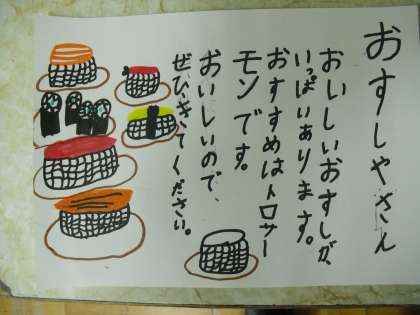 おすしやさん
おいしいおすしが、
いっぱいあります。
おすすめはトロサー
モンです。
おいしいので、
ぜひきてください。